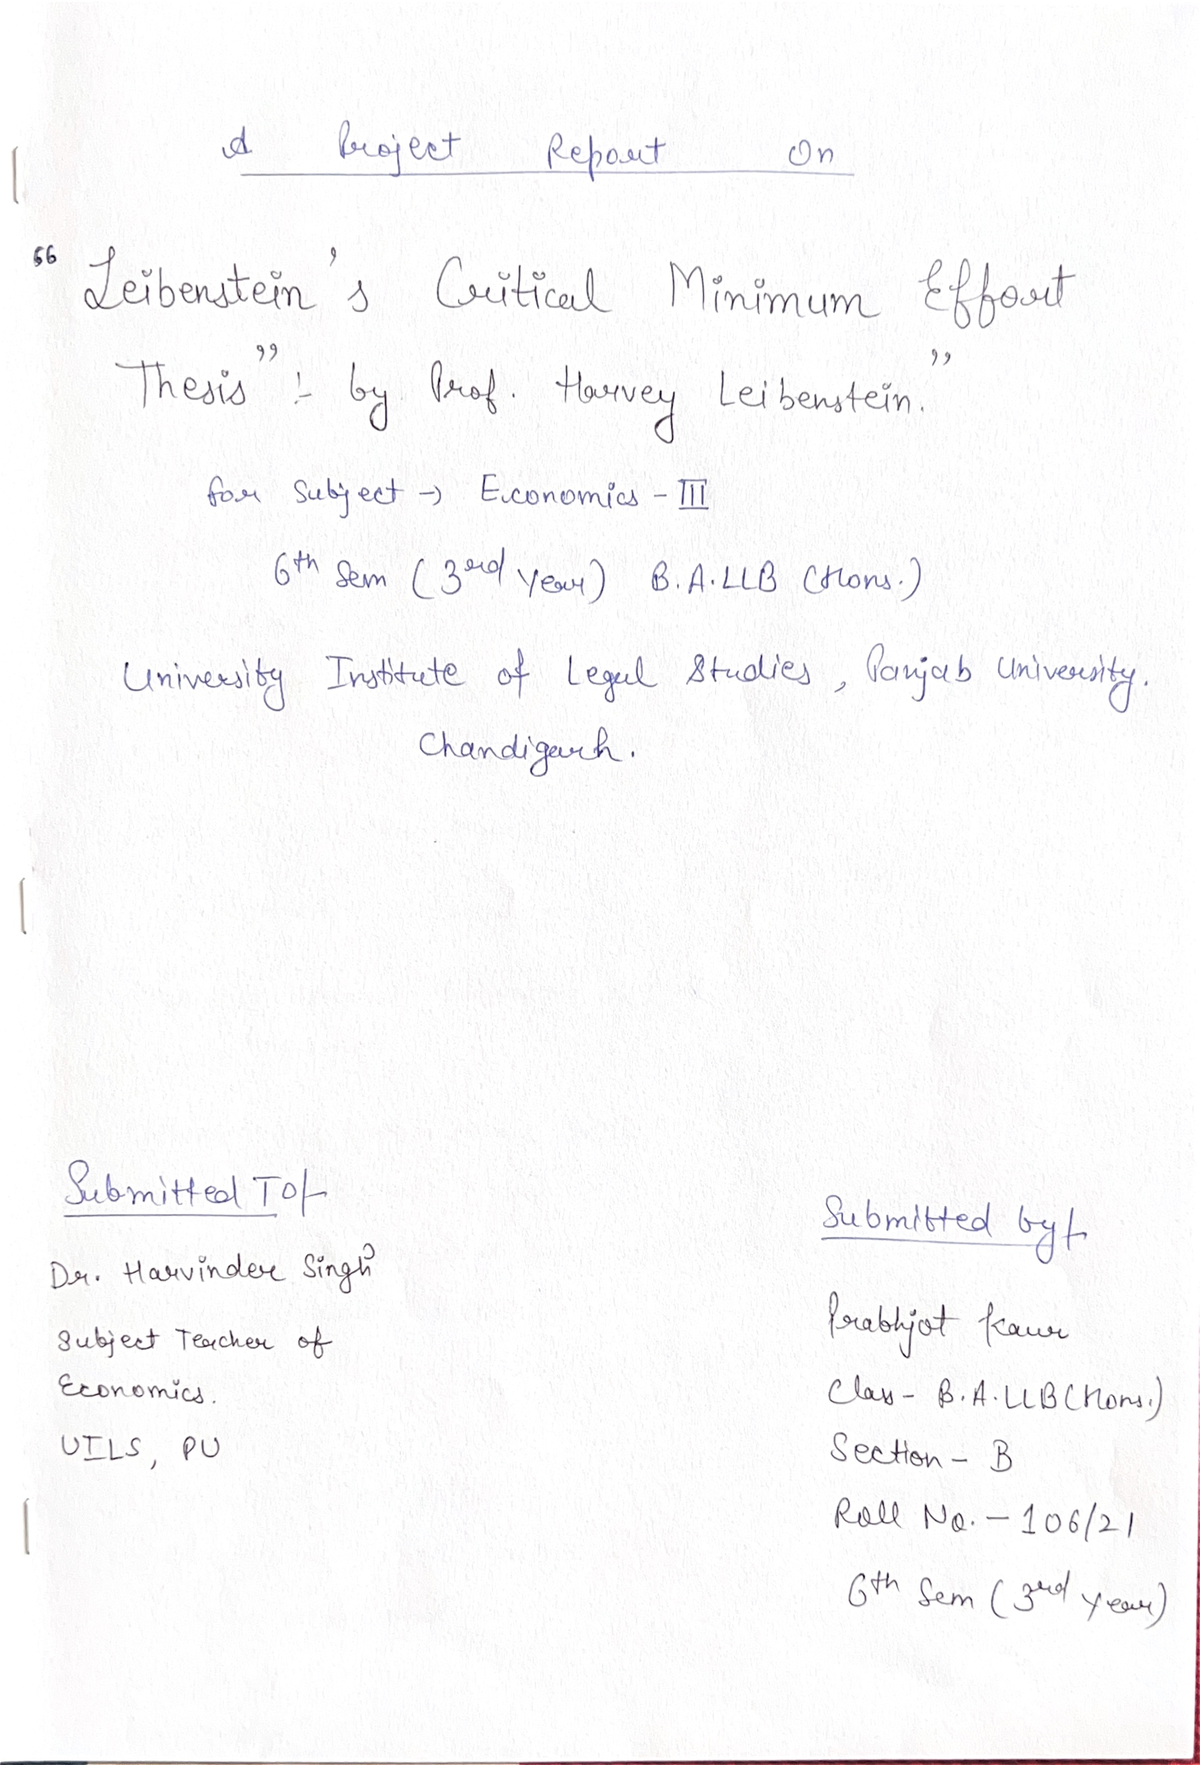 A Project Report On
"Leibenstein's Critical Minimum Effort
Thesis" :- by Prof. Harvey Leibenstein."
for Subject → Economics - III
6th Sem (3rd Year) B.A.LLB (Hons.)
University Institute of Legal Studies, Panjab University.
Chandigarh.
Submitted To:-
Dr. Harvinder Singh
Subject Teacher of
Economics.
UILS, PU
Submitted by:-
Prabhjot Kaur
Class - B.A.LLB (Hons.)
Section - B
Roll No. - 106/21
6th Sem (3rd Year)